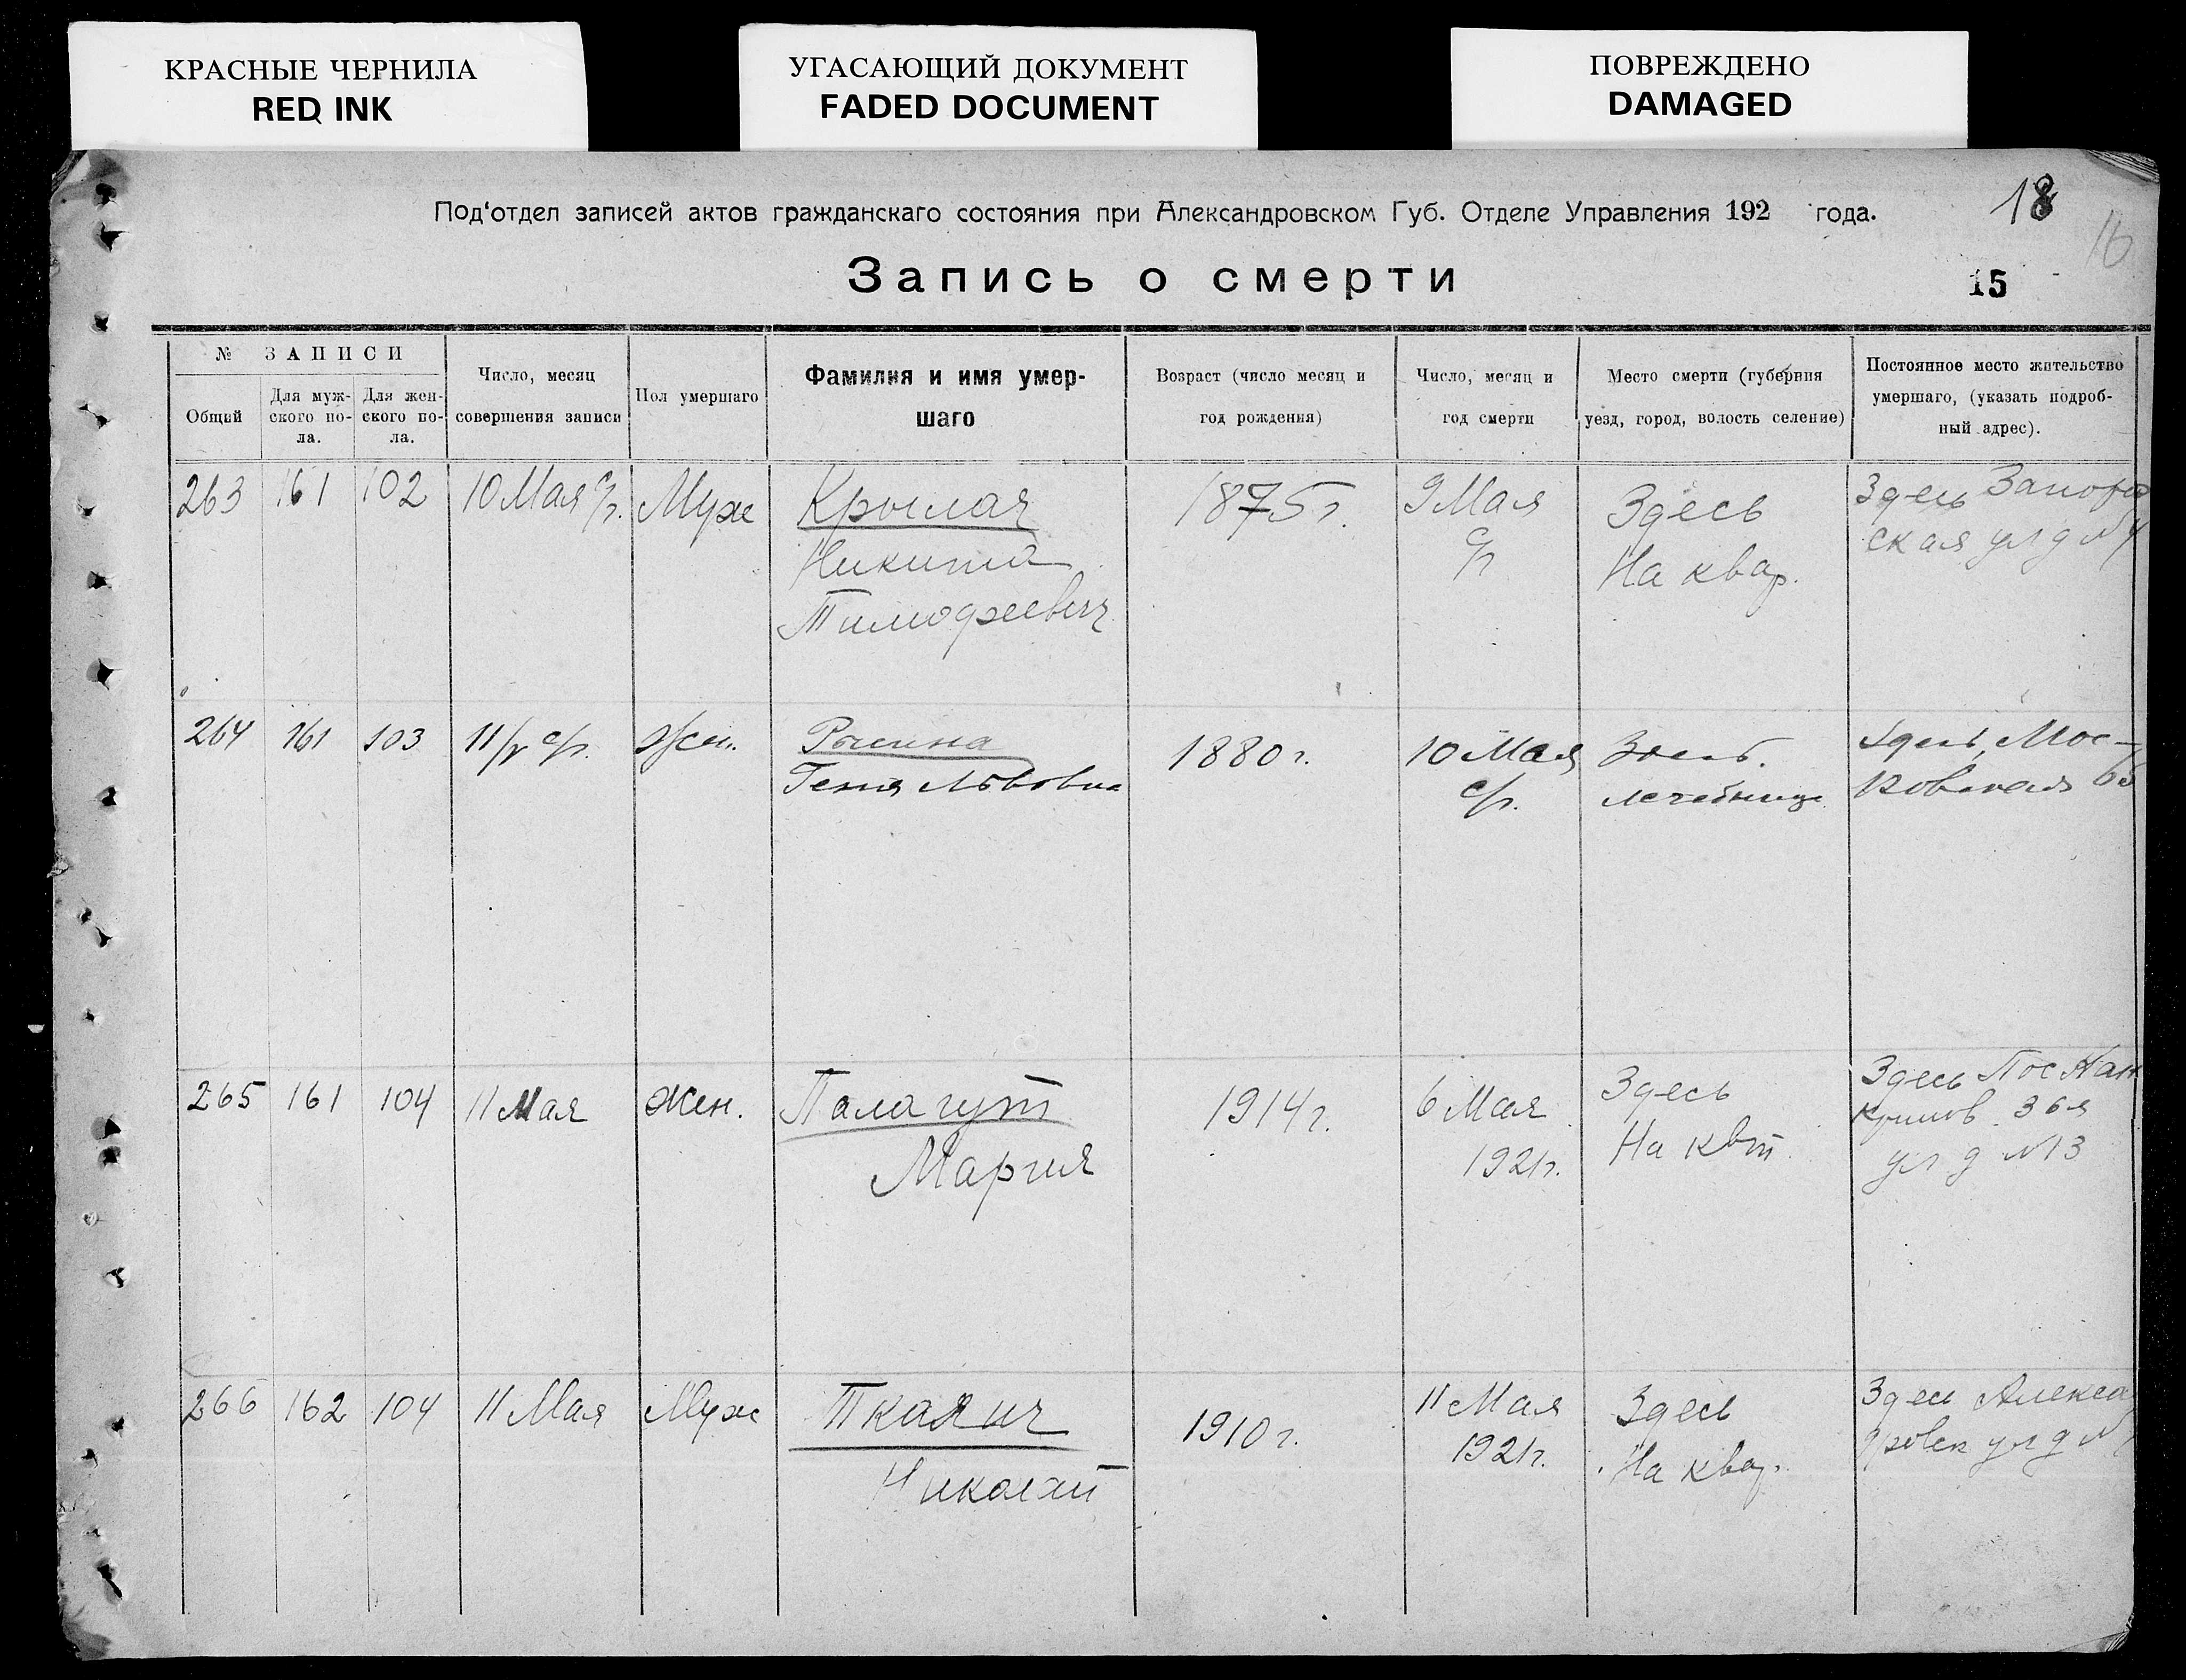 КРАСНЫЕ ЧЕРНИЛА
RED INK
УГАСАЮЩИЙ ДОКУМЕНТ
FADED DOCUMENT
ПОВРЕЖДЕНО
DAMAGED
Под'отдел записей актов гражданскаго состояния при Александровском Губ. Отделе Управления 192 года.
18
16
Запись о смерти
15
№ ЗАПИСИ
Общий
Для муж-
ского по-
ла.
Для жен-
ского по-
ла.
Число, месяц
совершения записи
Пол умершаго
Фамилия и имя умер-
шаго
Возраст (число месяц и
год рождения)
Число, месяц и
год смерти
Место смерти (губерния
уезд, город, волость селение)
Постоянное место жительство
умершаго, (указать подроб-
ный адрес).
263 161 102 10 Мая с/г. Муж
Крылач
Никита
Тимофеевич
1875 г.
9 Мая
с/г
Здесь
На квар.
Здесь
ская ул д №
264 161 103 11/V с/г. Жен.
Рысина
Геня Львовна
1880 г.
10 Мая
с/г.
Здесь.
лечебнице
Здесь, Мос-
ковская
265 161 104 11 Мая Жен.
Палагут
Мария
1914 г.
6 Мая
1921 г.
Здесь
На квт.
Здесь Пос
36я
ул д №13
266 162 104 11 Мая Муж
Ткаяич
Николай
1910 г.
11 Мая
1921 г.
Здесь
На квар.
Здесь Алекса
дровск ул д №